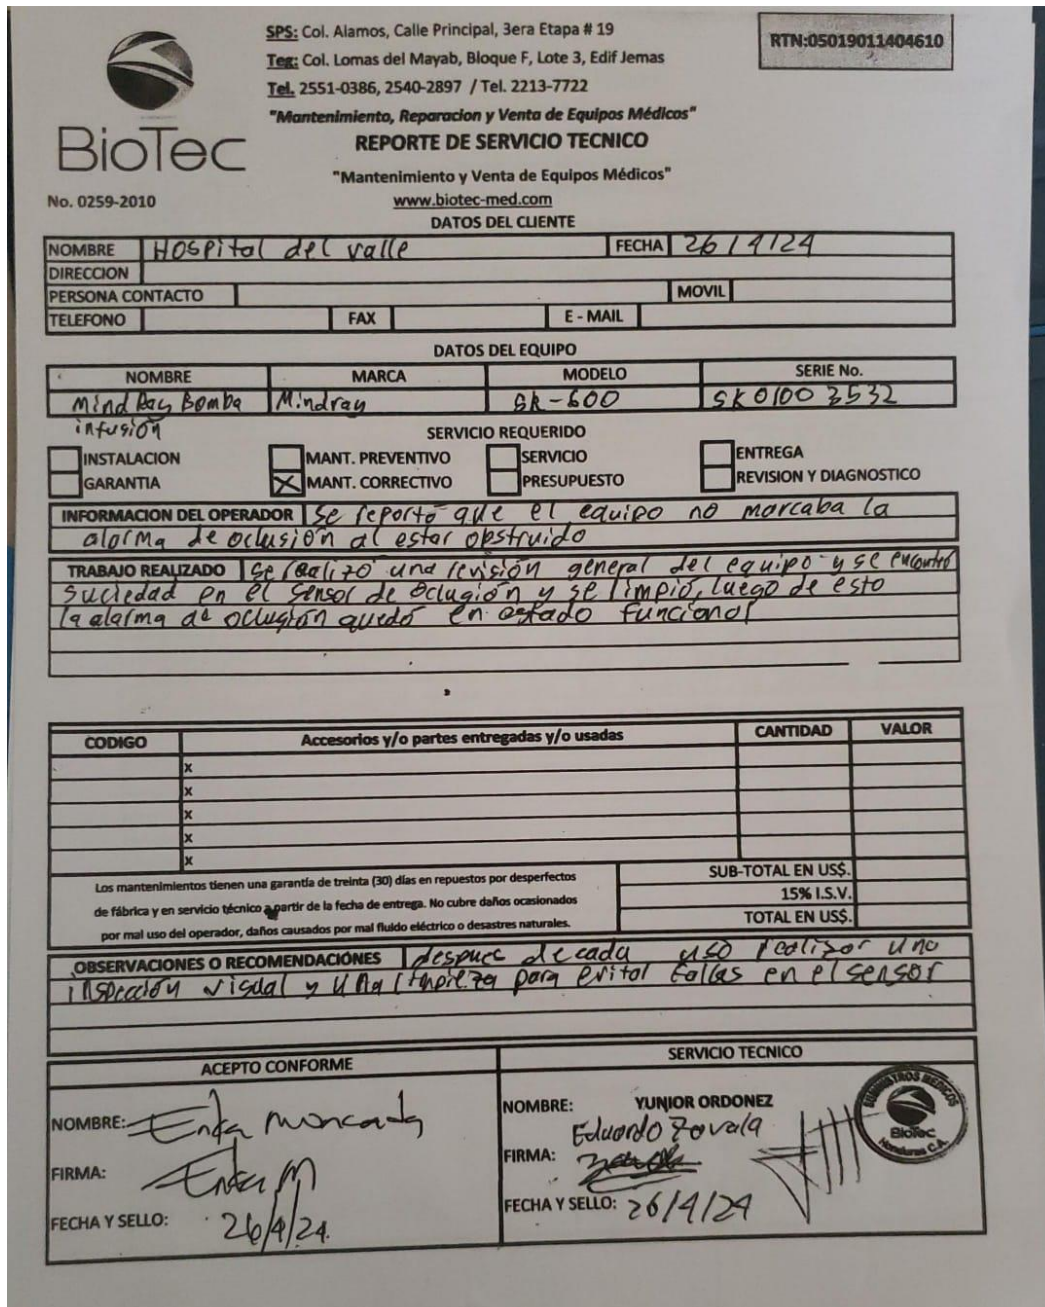 SPS: Col. Alamos, Calle Principal, 3era Etapa # 19
RTN:05019011404610
Teg: Col. Lomas del Mayab, Bloque F, Lote 3, Edif Jemas
Tel. 2551-0386, 2540-2897 / Tel. 2213-7722
"Mantenimiento, Reparacion y Venta de Equipos Médicos"
BioTec
REPORTE DE SERVICIO TECNICO
"Mantenimiento y Venta de Equipos Médicos"
No. 0259-2010
www.biotec-med.com
DATOS DEL CLIENTE
NOMBRE Hospital del valle FECHA 26/4/24
DIRECCION
PERSONA CONTACTO MOVIL
TELEFONO FAX E - MAIL
DATOS DEL EQUIPO
NOMBRE MARCA MODELO SERIE No.
MindRay Bomba Mindray SK-600 SK01003532
infusión
SERVICIO REQUERIDO
INSTALACION MANT. PREVENTIVO SERVICIO ENTREGA
GARANTIA X MANT. CORRECTIVO PRESUPUESTO REVISION Y DIAGNOSTICO
INFORMACION DEL OPERADOR se reportó que el equipo no marcaba la
alarma de oclusión al estar obstruido
TRABAJO REALIZADO se realizó una revisión general del equipo y se encontró
suciedad en el sensor de oclusión y se limpió, luego de esto
la alarma de oclusión quedó en estado funcional
CODIGO Accesorios y/o partes entregadas y/o usadas CANTIDAD VALOR
x
x
x
x
x
Los mantenimientos tienen una garantía de treinta (30) días en repuestos por desperfectos
de fábrica y en servicio técnico a partir de la fecha de entrega. No cubre daños ocasionados
por mal uso del operador, daños causados por mal fluido eléctrico o desastres naturales.
SUB-TOTAL EN US$.
15% I.S.V.
TOTAL EN US$.
OBSERVACIONES O RECOMENDACIONES despues de cada uso realizar una
inspección visual y una limpieza para evitar fallas en el sensor
ACEPTO CONFORME SERVICIO TECNICO
NOMBRE: Enka Moncada
FIRMA: Enka M
FECHA Y SELLO: 26/4/24.
NOMBRE: YUNIOR ORDONEZ
Eduardo Zavala
FIRMA:
FECHA Y SELLO: 26/4/24
SUMINISTROS MEDICOS
BioTec
Honduras C.A.